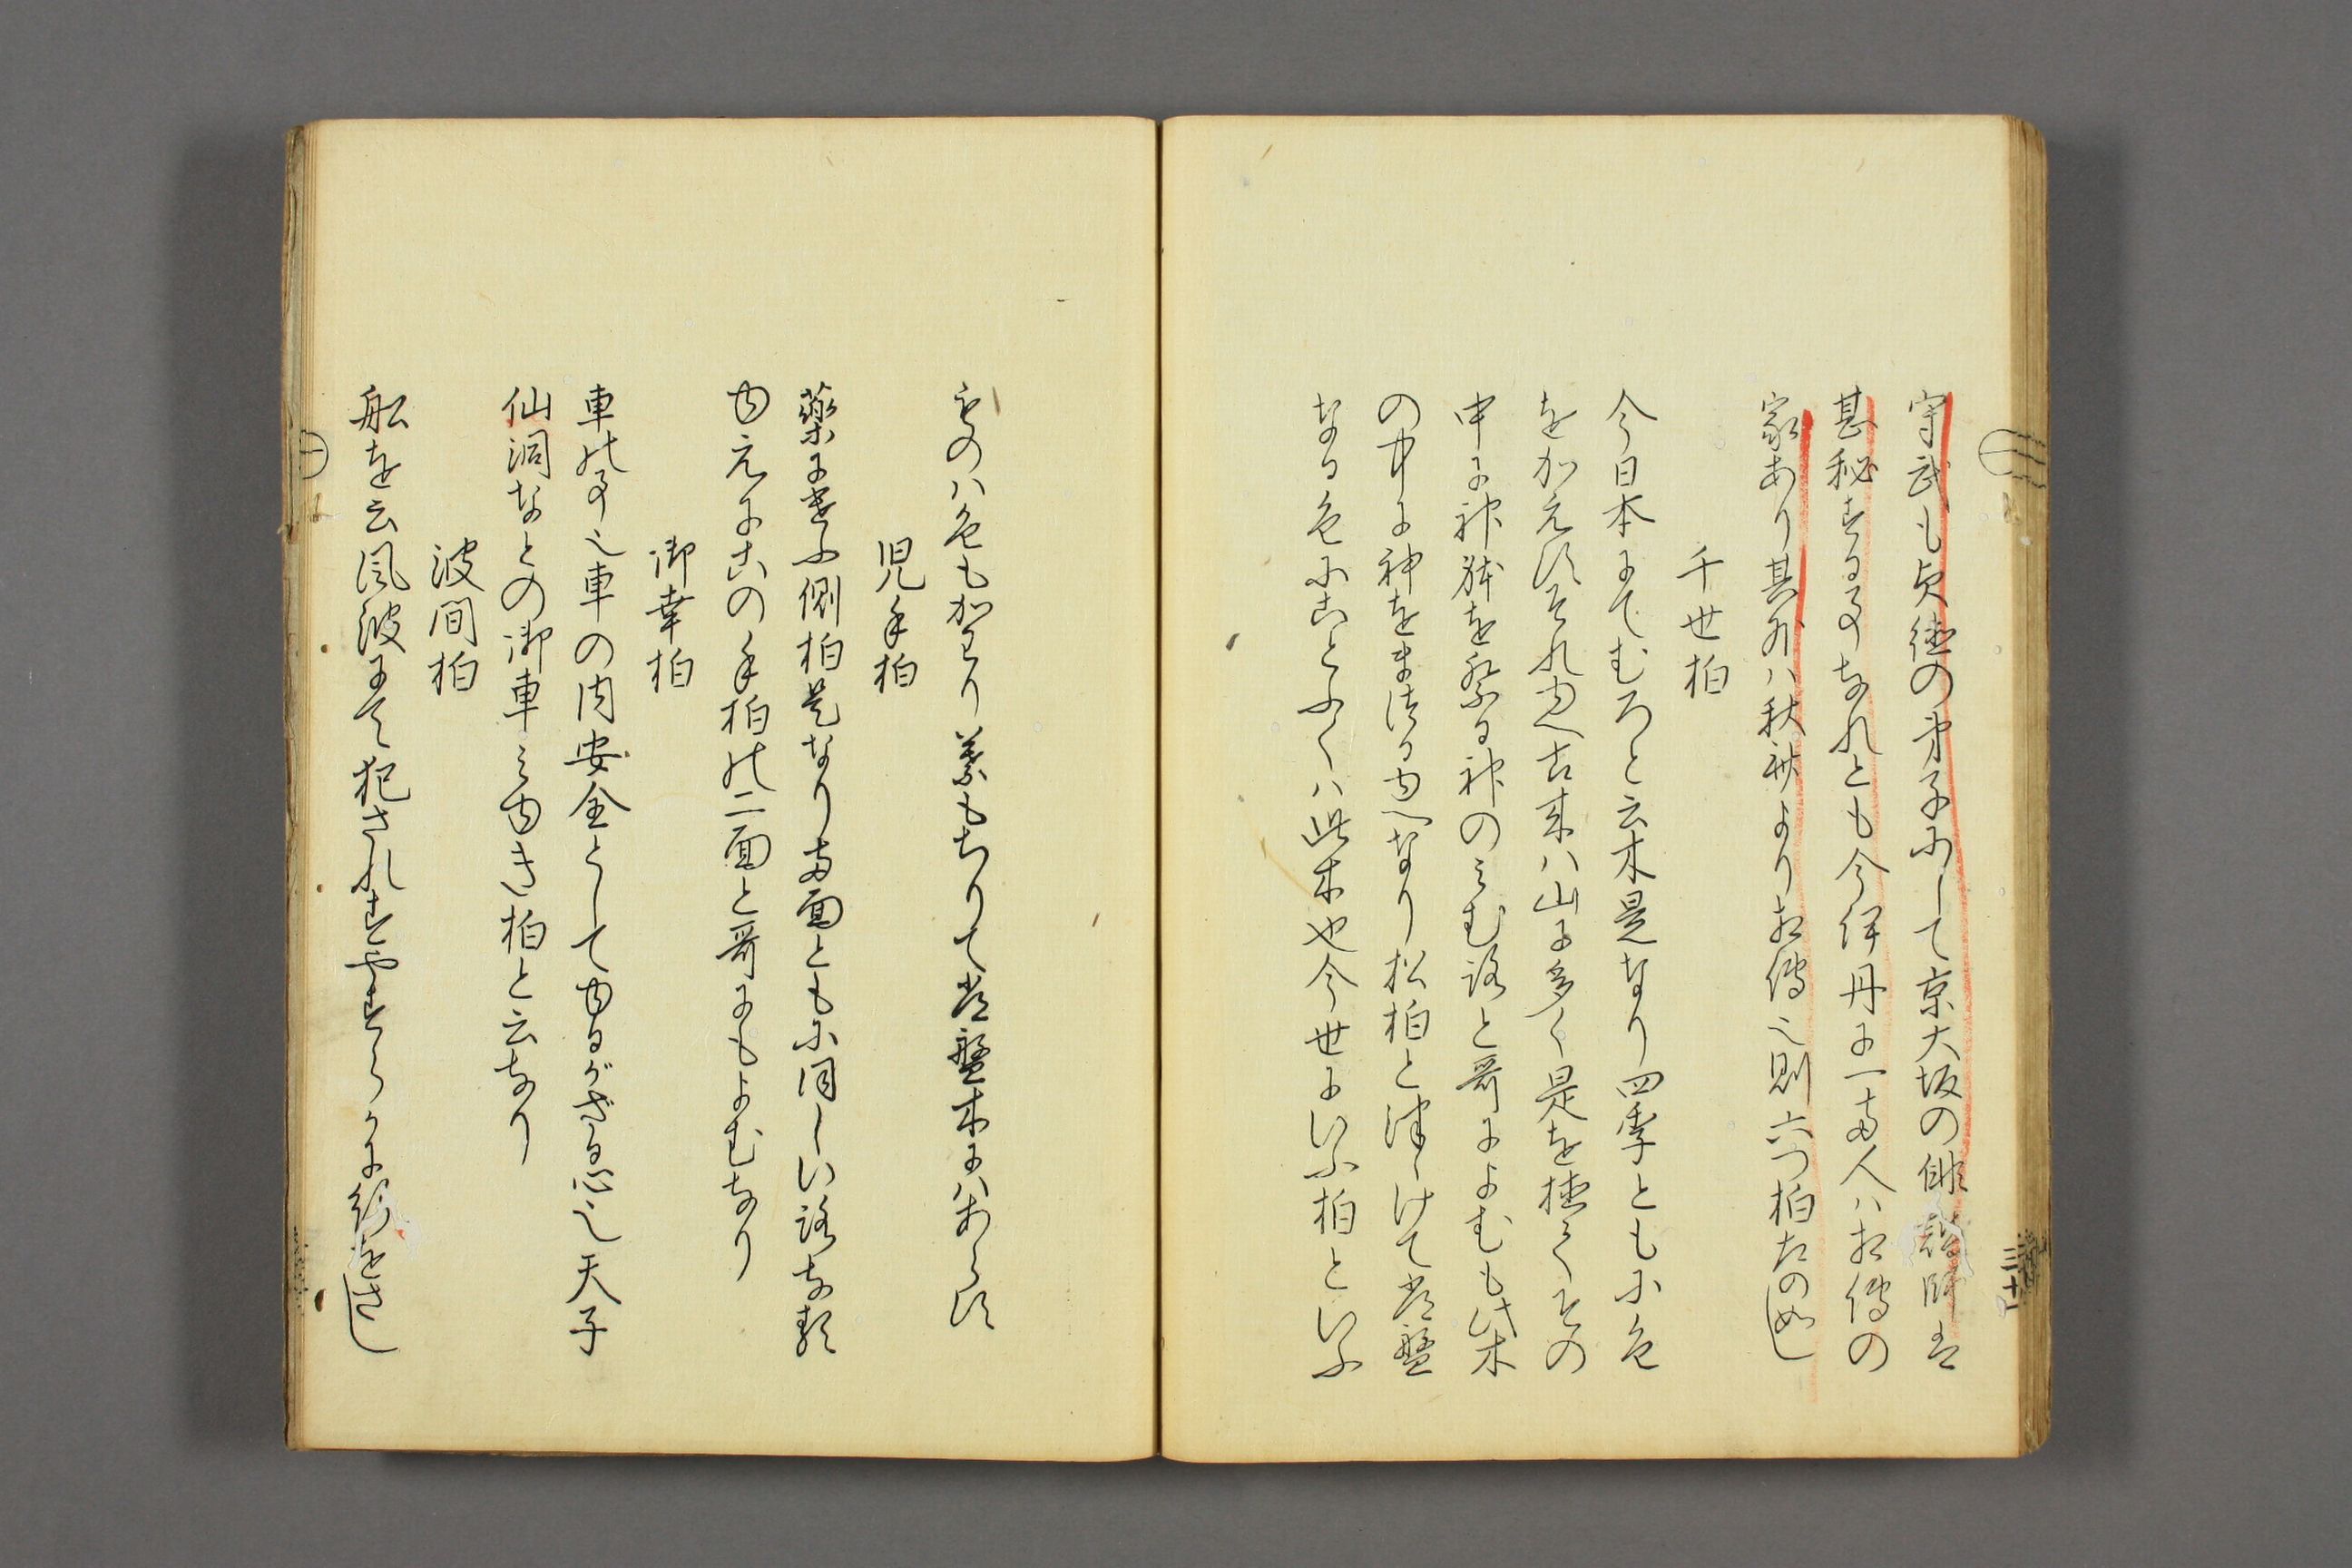 守武も貞徳の弟子にして京大坂の俳諧師は
甚秘する事なれとも今伊丹に一両人ハ相傳の
家あり其外ハ秋齋より相傳之則六つ柏左の如し
千世柏
今日本にてむろと云木是なり四季ともに色
をかえすそれゆへ古来ハ山に多く是を植てその
中に神躰を祭る神のみむ路と哥によむも此木
の中に神をまほるゆへなり松柏とつゝけて常盤
なる色にことふくハ此木也今世にいふ柏といふ
ものハ色もかはり葉もちりて常盤木にハあらす
児手柏
薬につかふ側柏是なり両面ともに同しいろなる
ゆえにこの手柏の二面と哥にもよむなり
御幸柏
車の事也車の内安全としてゆるがざる心也天子
仙洞なとの御車みゆき柏と云なり
波間柏
舩を云風波にて犯されすやすらかに行をさし
三十一